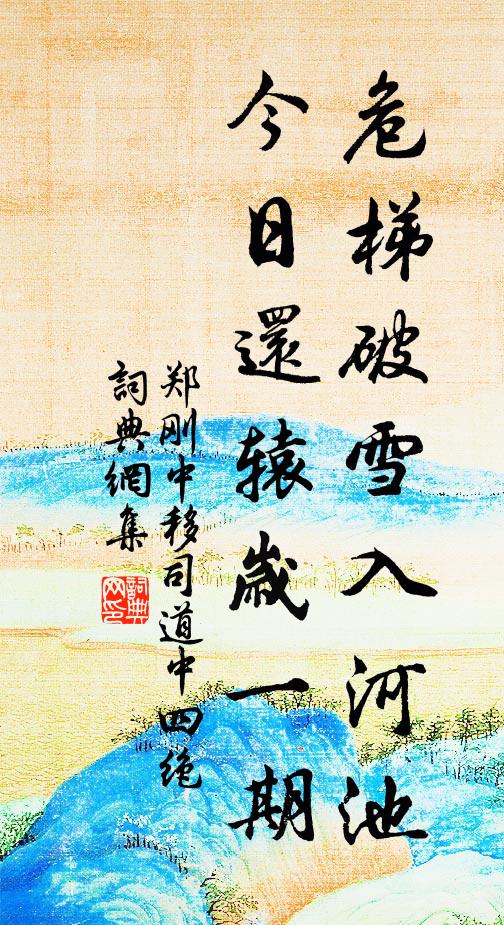 危梯破雪入河池
今日還辕歲一期
郑刚中移司道中四绝
詞典網集
詞典
网印